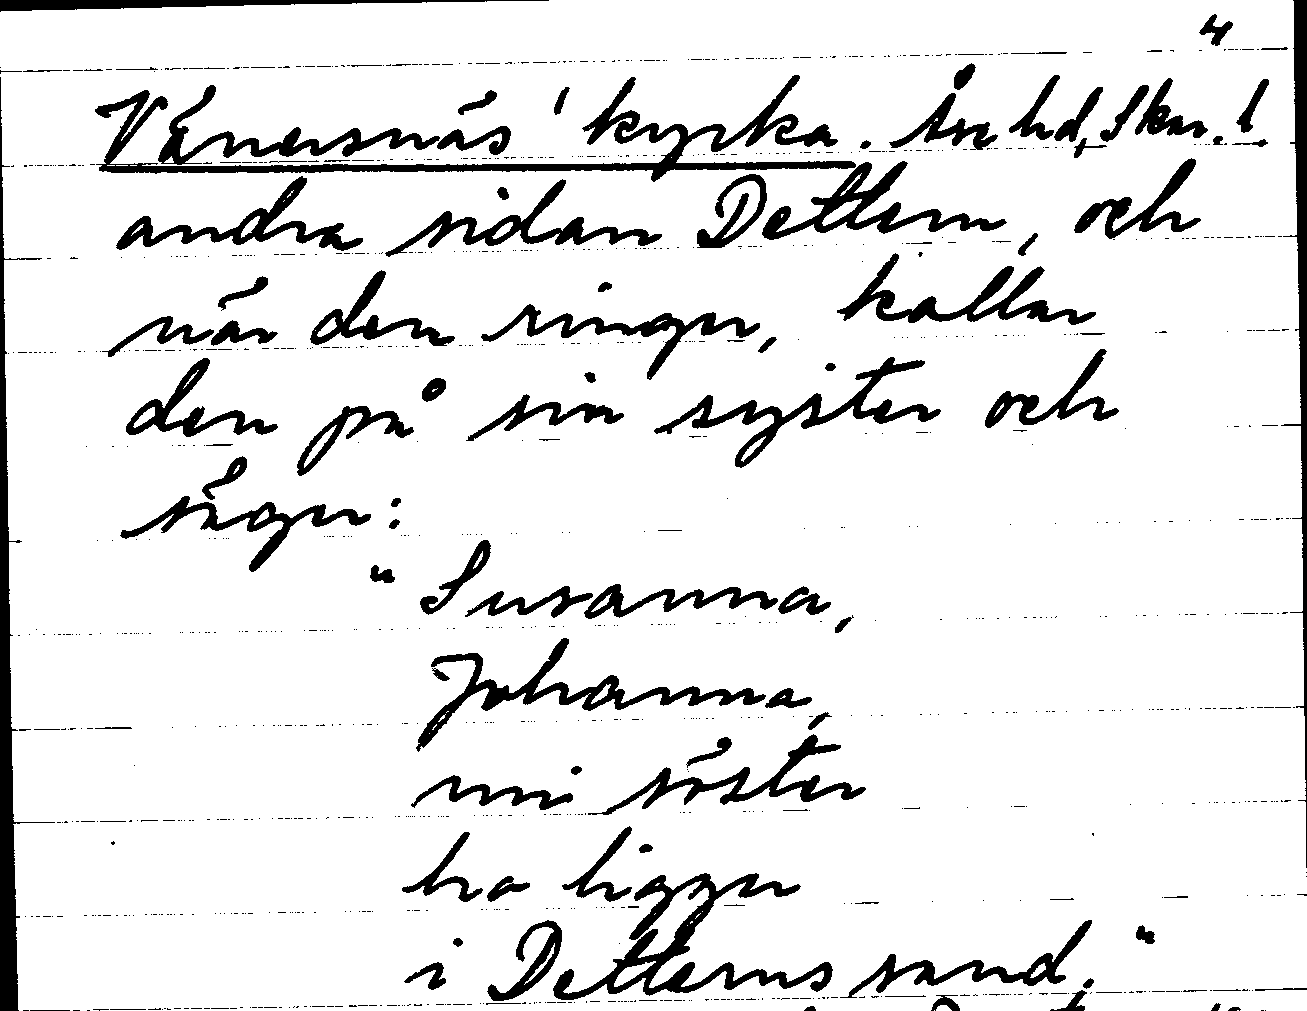 4
Vänersnäs' kyrka. Åse hd, Skar. l.
andra sidan Dettern, och
när den ringer, kallar
den på sin syster och
säger:
"Susanna,
Johanna,
mi söster
ho ligger
i Detterns sand."